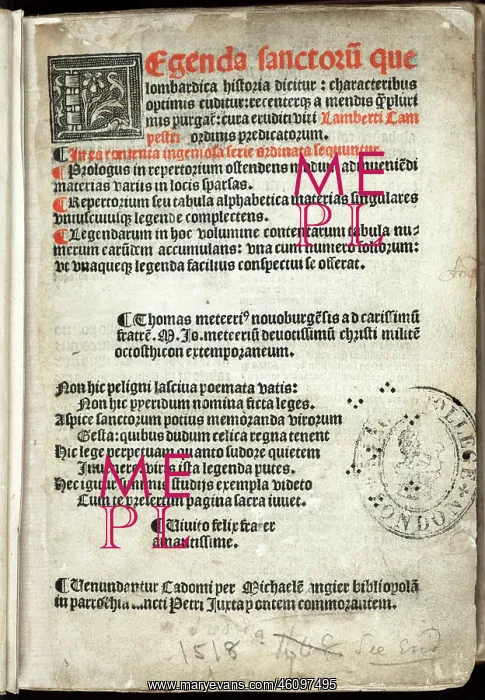 Legenda sanctorū que
lombardica historia dicitur : characteribus
optimis cuditur:recenterqȝ a mendis q̄ꝫpluri
mis purgat̃:cura eruditi viri Lamberti Cam
pestri ordinis predicatorum.
¶ In ea contenta ingeniosa serie ordinata sequuntur
¶ Prologus in repertorium ostendens modum adinueniēdi
materias varias in locis sparsas.
¶ Repertorium seu tabula alphabetica materias singulares
vniuscuiusqȝ legende complectens.
¶ Legendarum in hoc volumine contentarum tabula nu-
merum earūdem accumulans: vna cum numero foliorum:
vt vnaqueqȝ legenda facilius conspectui se offerat.
¶ Thomas meteeriꝰ nouoburgēsis ad carissimū
fratrē. M. Jo. meteeriū deuotissimū christi militē
octosthicon extemporaneum.
Non hic peligni lasciua poemata vatis:
Non hic pyeridum nomina ficta leges.
Aspice sanctorum potius memoranda virorum
Gesta: quibus dudum celica regna tenent
Hic lege perpetuam quanto sudore quietem
vir ista legenda putes.
Hec igitur studijs exempla videto
Cum te prelertum pagina sacra iuuet.
¶ Viuito felix frater
amantissime.
¶ Uenundantur Cadomi per Michaelē angier bibliopolā
in parrochia sancti Petri Juxta pontem commorantem.
COLLEGE
LONDON
1518 Title See End
ME
PL
ME
PL
www.maryevans.com/46097495